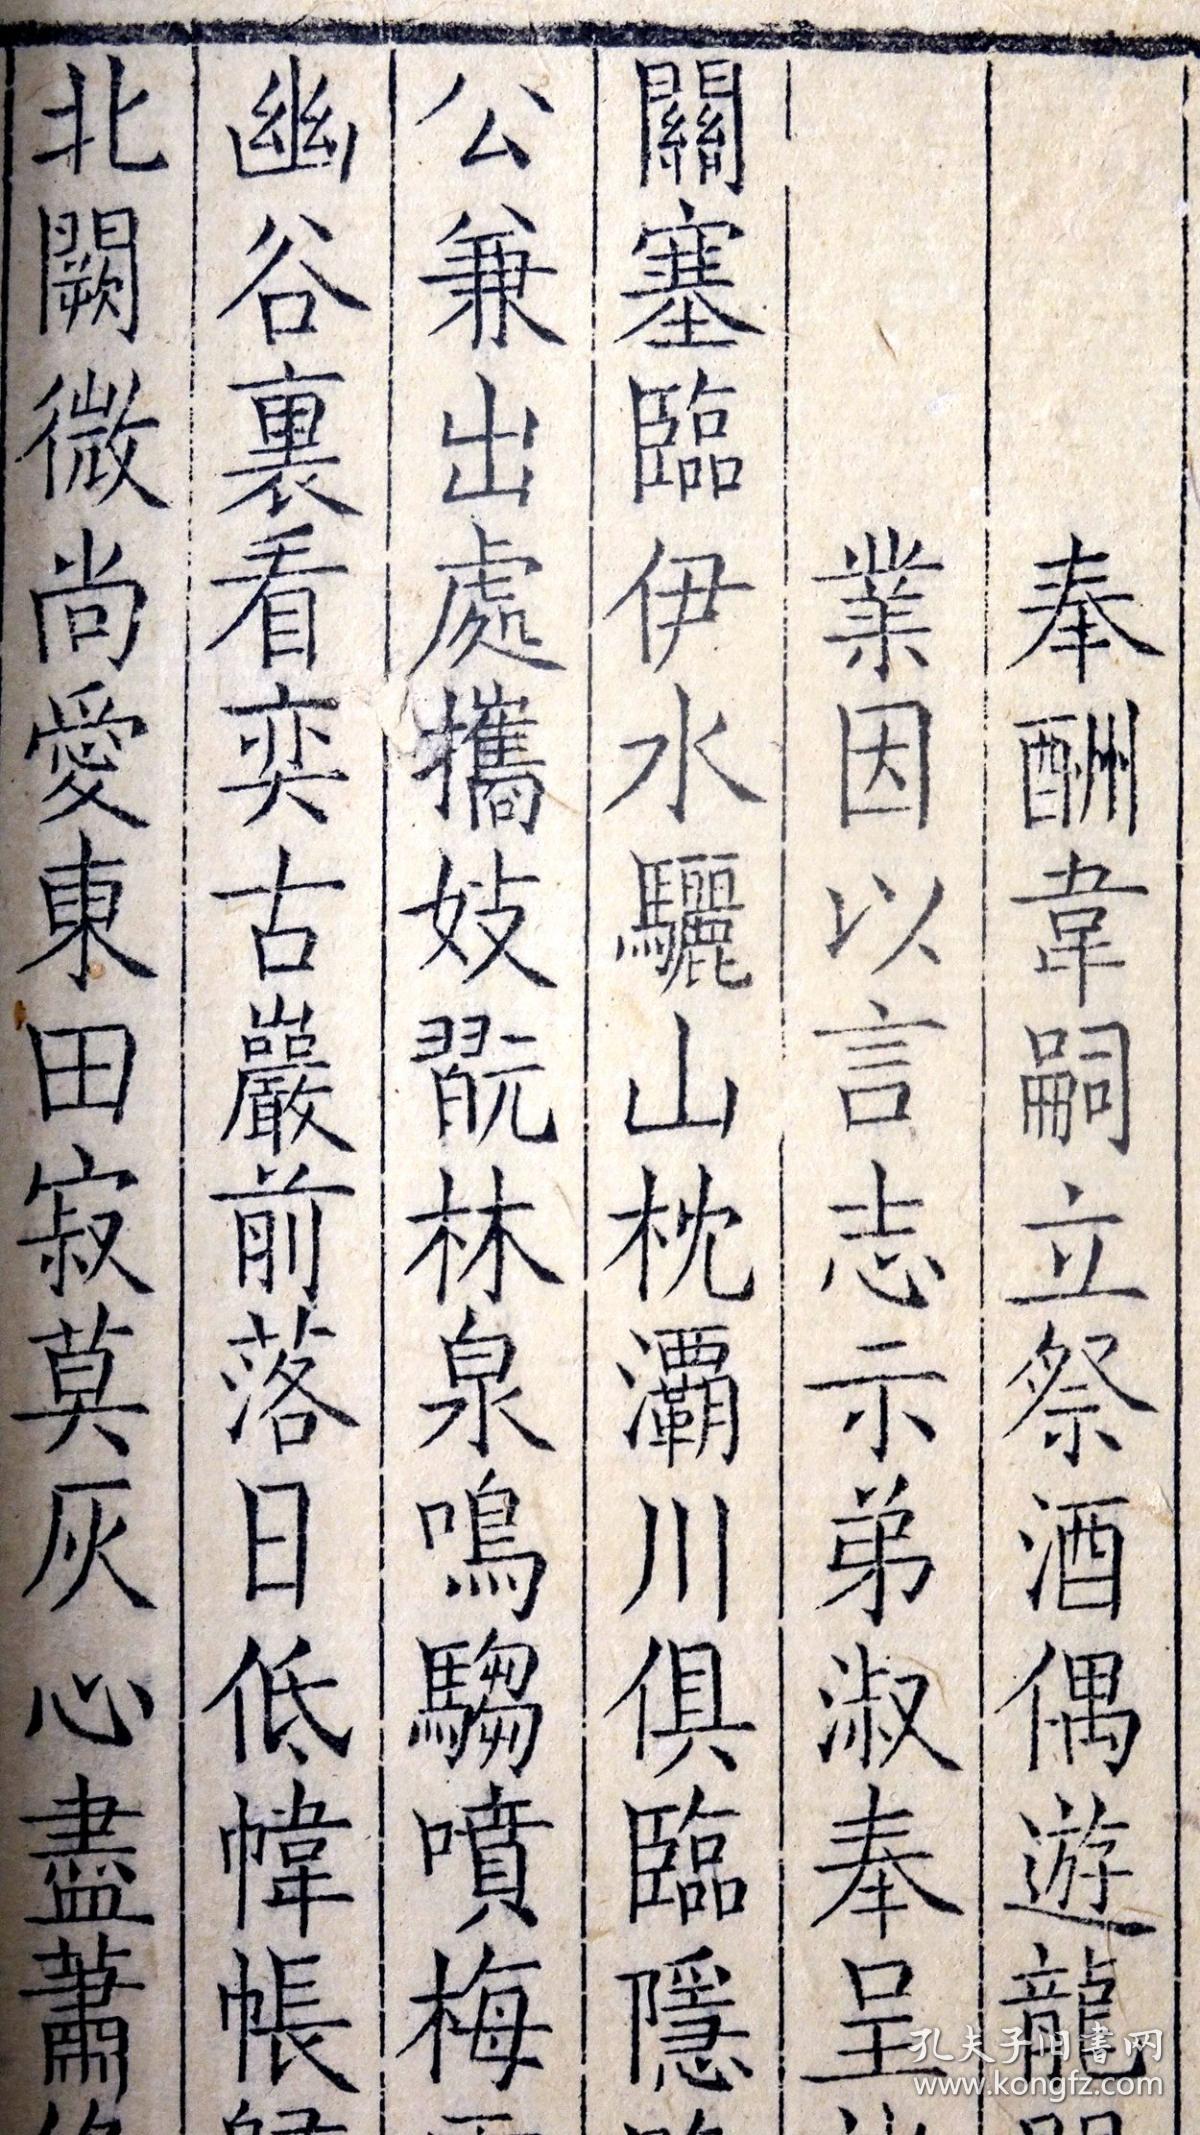 奉酬韋嗣立祭酒偶遊龍
業因以言志示弟淑奉呈
關塞臨伊水驪山枕灞川俱臨隱
公兼出處攜妓翫林泉鳴騶噴梅
幽谷裏看奕古巖前落日低幃帳
北闕微尚愛東田寂莫灰心盡蕭
孔夫子旧書网
www.kongfz.com